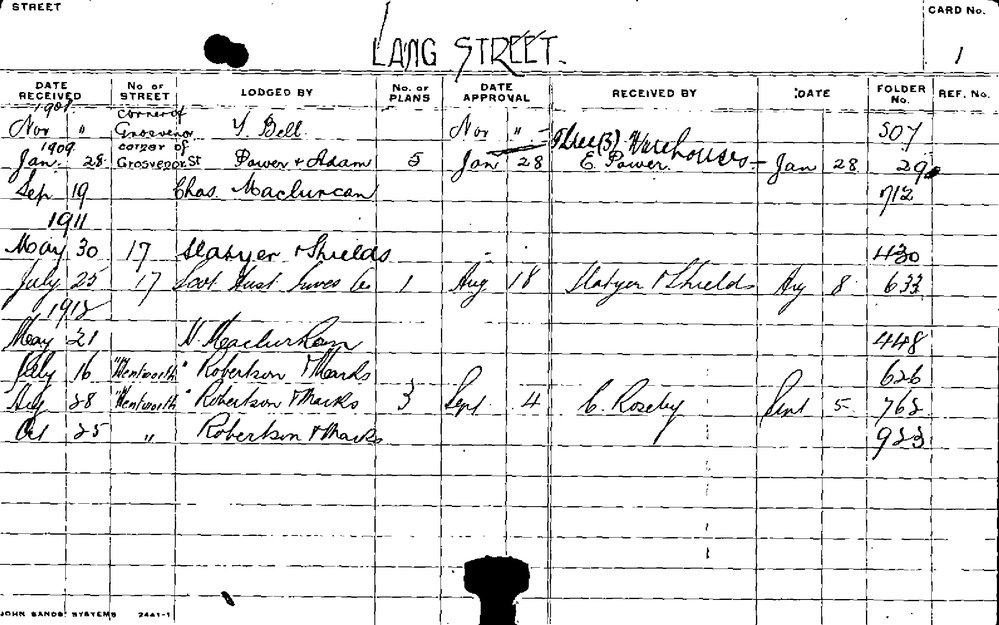 STREET
CARD No.
LANG STREET.
1
DATE RECEIVED No. OF STREET LODGED BY No. OF PLANS DATE APPROVAL RECEIVED BY DATE FOLDER No. REF. No.
1908 corner of
Nov " Grosvenor Y. Bell Nov " = Three (3) Warehouses - 507
1909 corner of
Jan. 28. Grosvenor St Power & Adam 5 Jan 28 E Power. Jan 28. 29
Sep 19 Chas. Maclurcan 712
1911
May 30 17 Slatyer & Shields 430
July 25 17 1 Aug 18 Slatyer & Shields Aug 8 633
1912
May 21 N. Maclurkan 448
July 16 "Wentworth" Robertson & Marks 626
Aug 28 "Wentworth" Robertson & Marks 3 Sept 4 C. Roseby Sept 5 762
Oct 25 " Robertson & Marks 923
JOHN SANDS' SYSTEMS 2441-1